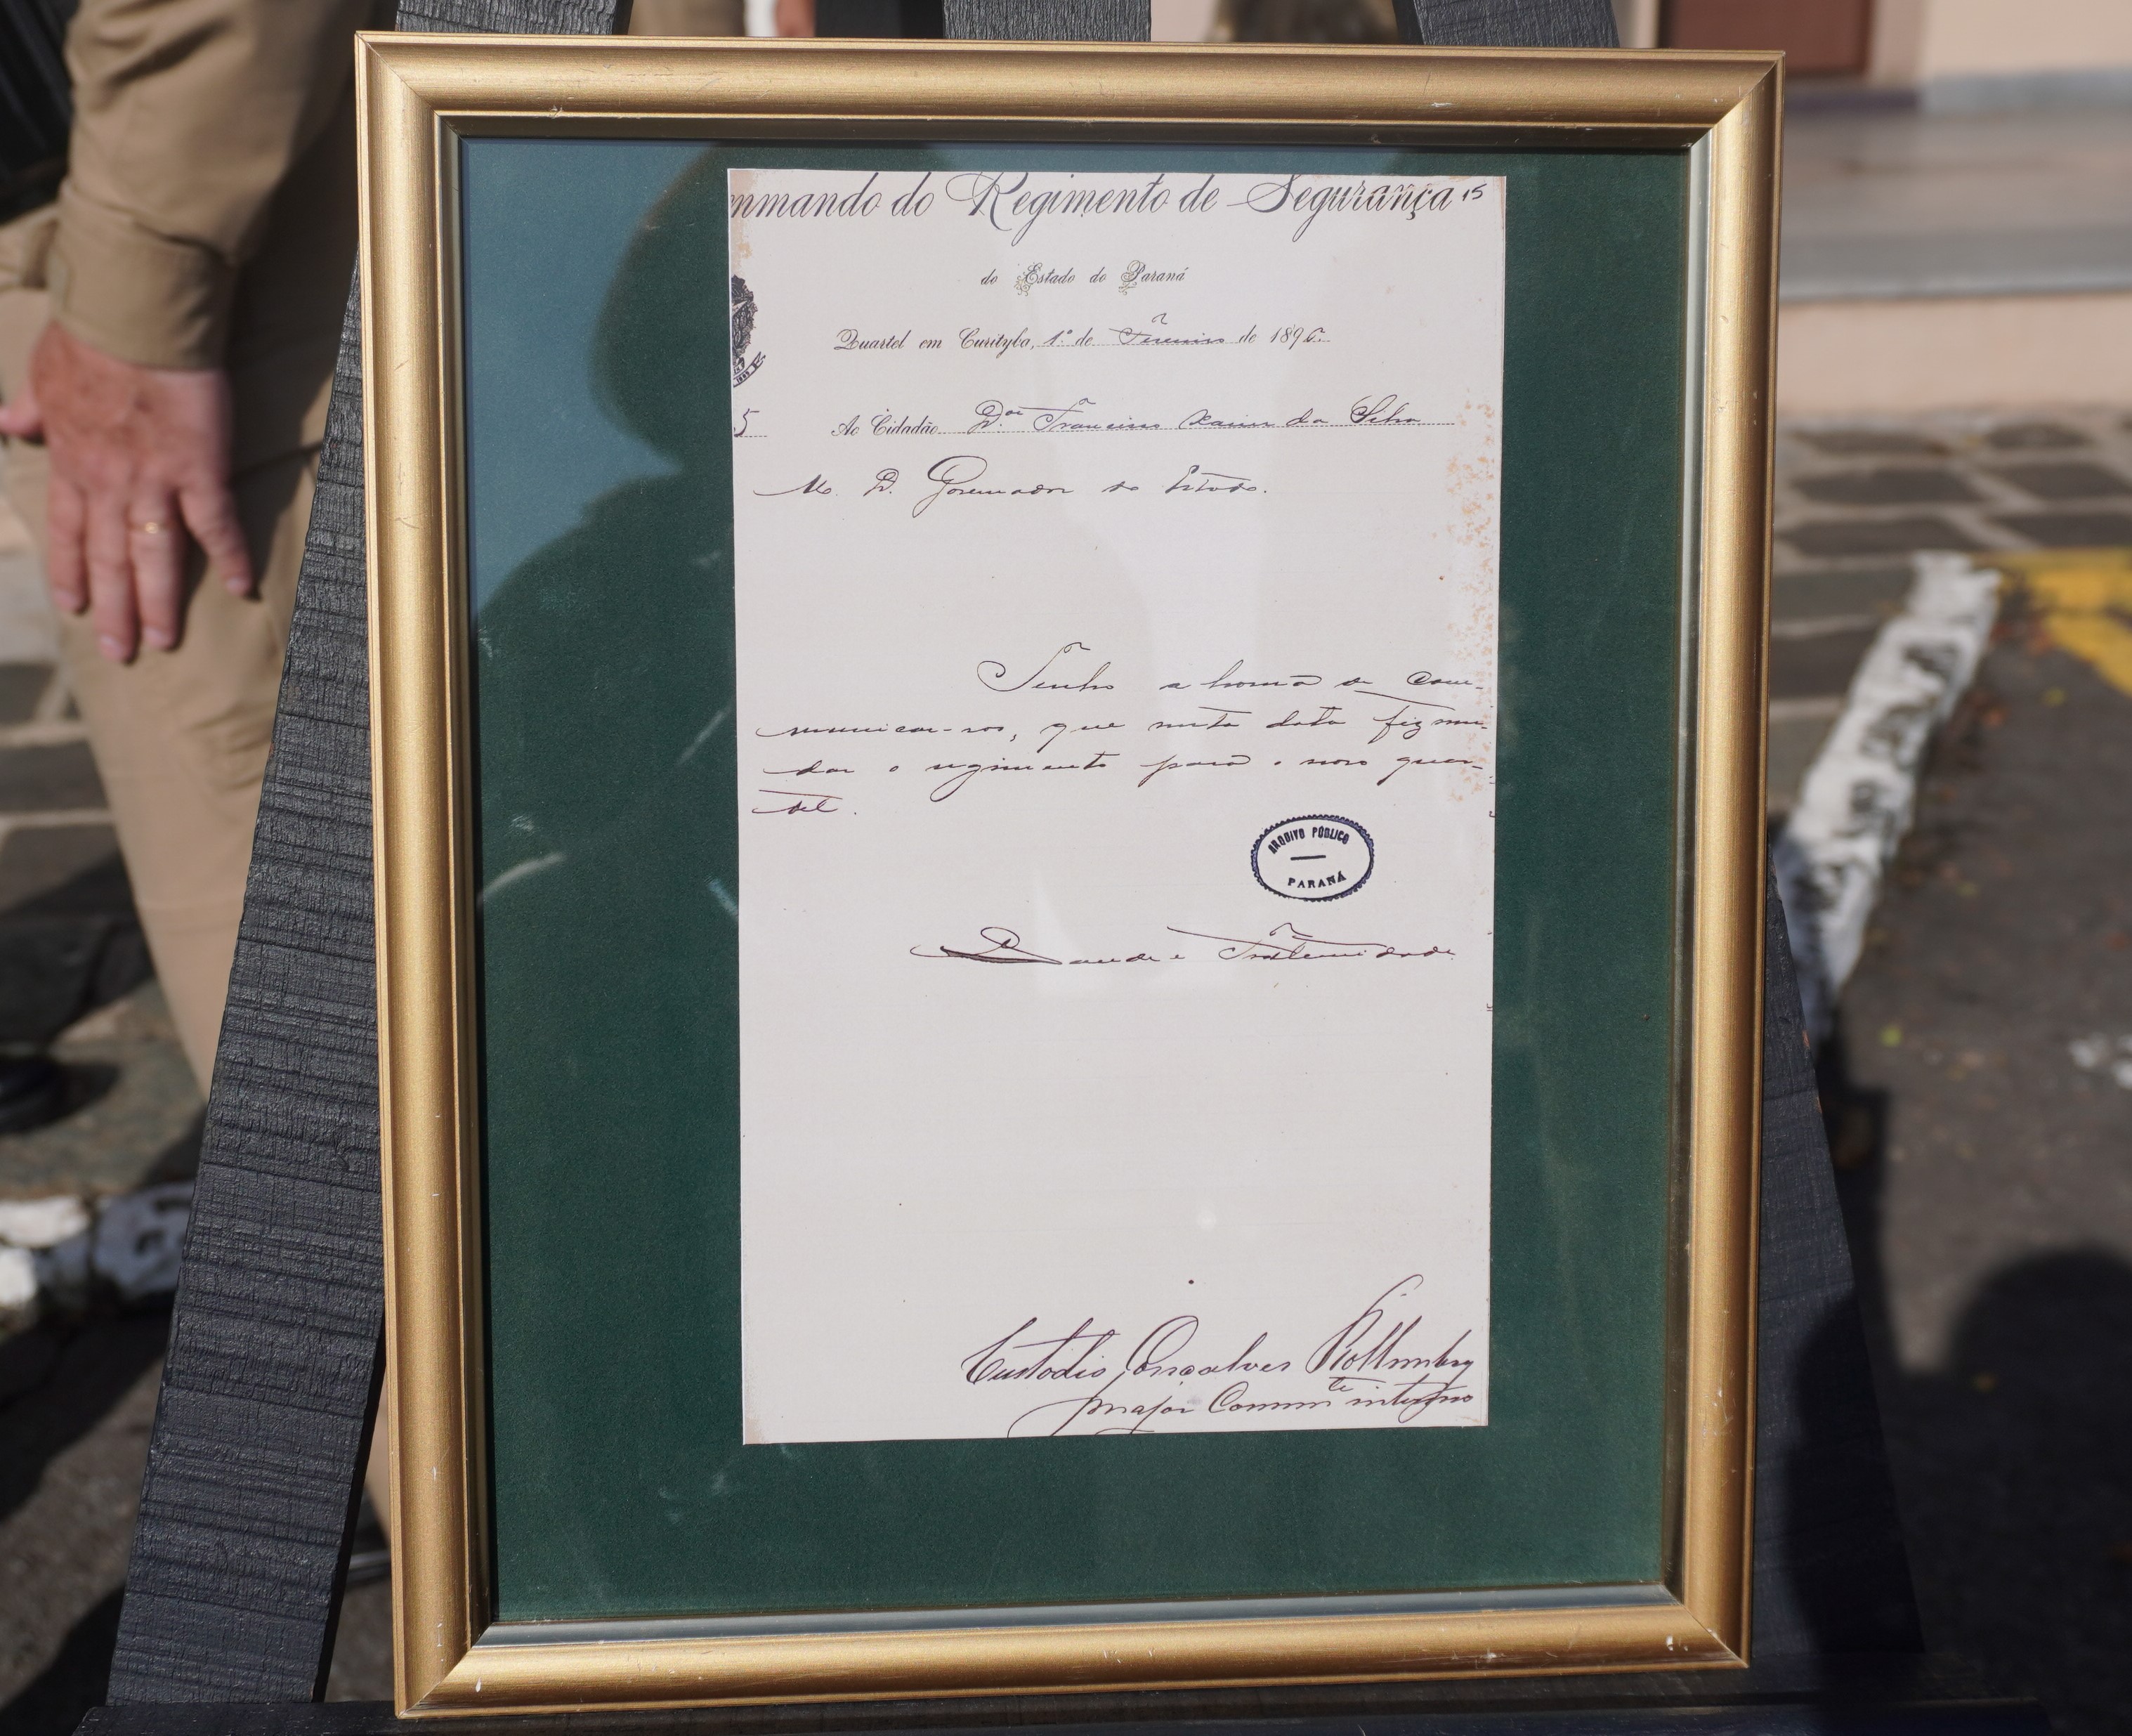 mmando do Regimento de Segurança 15
do Estado do Paraná
Quartel em Curityba, 1º de Fevereiro de 1896.
5 Ao Cidadão Dor. Francisco Xavier da Silva
M. D. Governador do Estado.
Tenho a honra de com-
municar-vos, que nesta data fiz mu-
dar o regimento para o novo quar-
tel.
ARQUIVO PÚBLICO
PARANÁ
Saude e Fraternidade
Custodio Gonçalves Rollemberg
major Commte interino